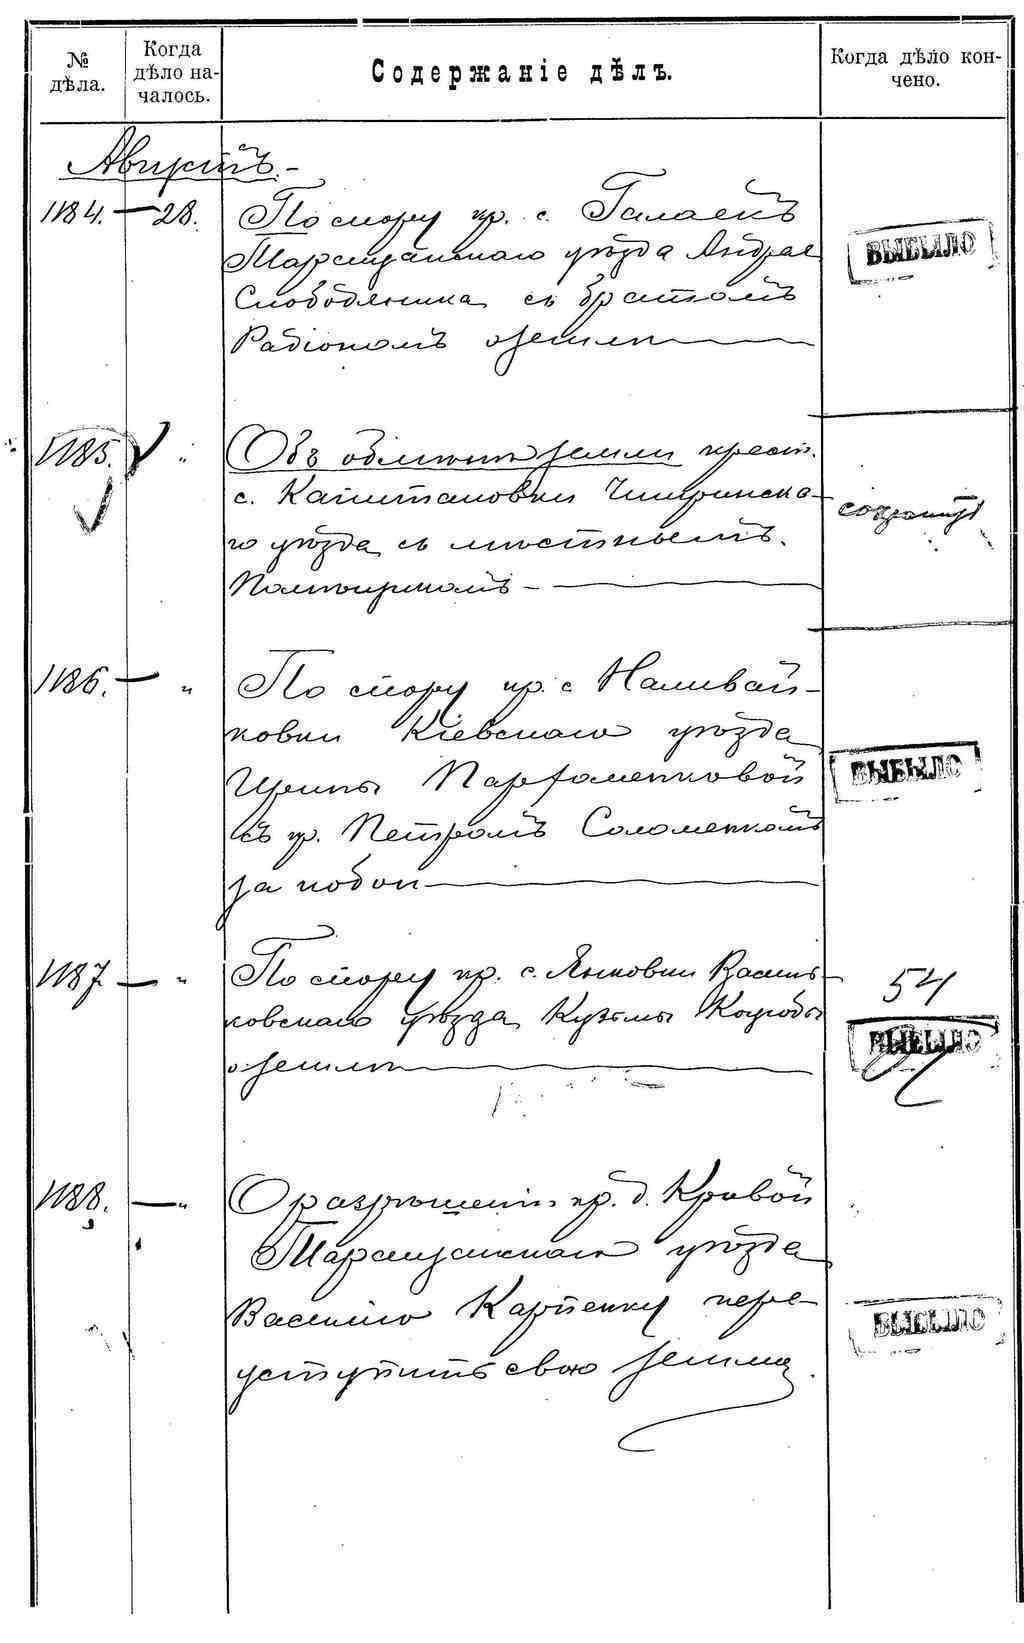 № дѣла.
Когда дѣло на-
чалось.
Содержаніе дѣлъ.
Когда дѣло кон-
чено.
Августъ.-
1184. — 28. По спору кр. с. Галаекъ
Таращанскаго уѣзда Андрея
Слободяника съ братомъ
Радіономъ о землѣ
ВЫБЫЛО
1185. " Объ обмѣнѣ земли крест.
с. Капитановки Чигринска-
го уѣзда съ мѣстнымъ
Помѣщикомъ -
сохранит
1186. — " По спору кр. с Наливай-
ковки Кіевскаго уѣзда
Ирины Парфоменковой
съ кр. Петромъ Соломенкомъ
за побои
ВЫБЫЛО
1187 — " По спору кр. с. Янковки Василь-
ковскаго уѣзда Кузьмы
о землѣ
54
ВЫБЫЛО
1188. — " О разрѣшеніи кр. д. Кривой
Таращанскаго уѣзда
Василію Карпенку пере-
уступить свою землю.
ВЫБЫЛО